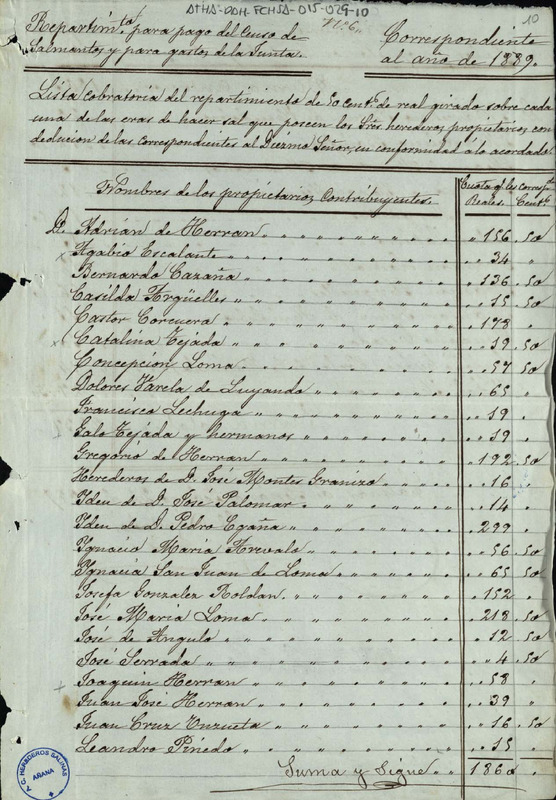 ATHA-DAH-FCHSA-015-029-10
Nº 6.
10
Repartim.to para pago del Censo de
Salmantos y para gastos de la Junta.
Correspondiente
al año de 1889.
Lista cobratoria del repartimiento de 50 cent.s de real girado sobre cada
una de las eras de hacer sal que poseen los Sres herederos propietarios con
deduccion de las correspondientes al Diezmo Señor, en conformidad á lo acordado.
Nombres de los propietarios Contribuyentes.
Cuota q.e les corresp.de
Reales. Cent.s
D. Adrián de Herran " 156 . 50
Agabio Escalante " 34 "
Bernardo Cazaña " 136 . 50
Casilda Argüelles " 15 . 50
Castor Corcuera " 178 "
Catalina Tejada " 39 . 50
Concepcion Loma " 57 . 50
Dolores Varela de Luyando " 65 "
Francisco Lechuga " 19 "
Galo Tejada y hermanos " 19 "
Gregorio de Herran " 192 . 50
Herederos de D. José Montes Granizo " 16 "
Yden de D. José Palomar " 14 "
Yden de D. Pedro Egaña " 299 "
Ygnacio Maria Arevalo " 56 . 50
Ygnacia San Juan de Loma " 65 . 50
Josefa Gonzalez Roldan " 152 "
José Maria Loma " 218 . 50
José de Angulo " 12 . 50
José Serrada " 4 . 50
Joaquin Herran " 58 "
Juan José Herran " 39 "
Juan Cruz Unzueta " 16 . 50
Leandro Pinedo " 15 "
Suma y Sigue " 1860 "
HEREDEROS SALINAS
AÑANA